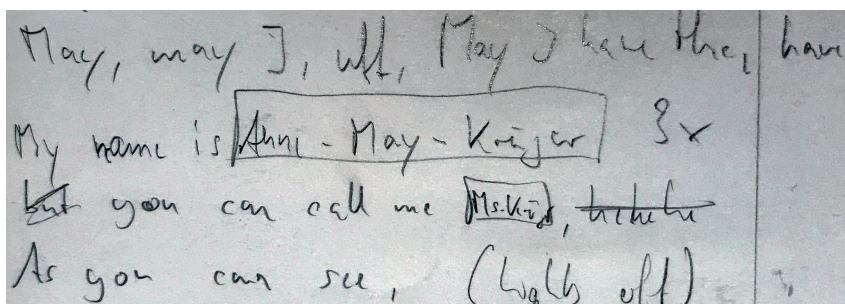 May, may I, uff, May I have the, have
My name is Anne-May-Krüger 3x
but you can call me Ms. Krü, hihihi
As you can see, (walks off)